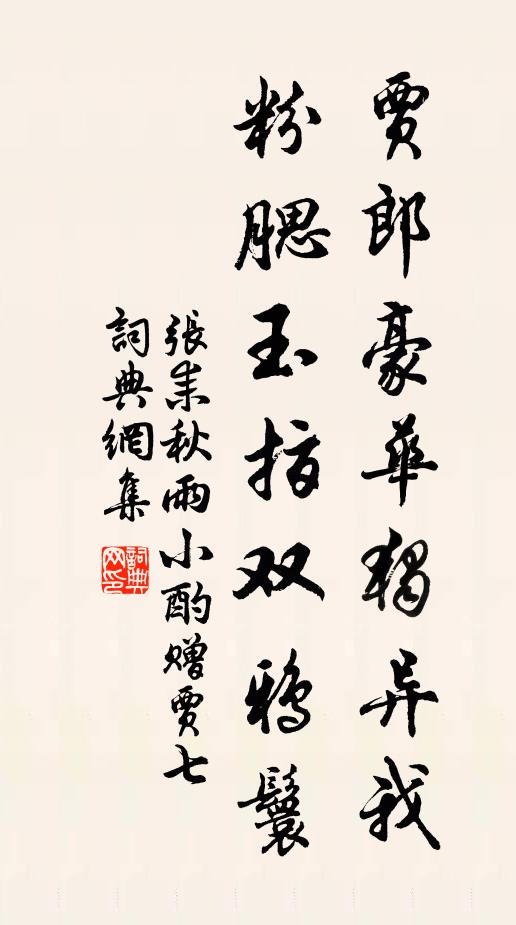 贾郎豪華独异我
粉腮玉指双鸦鬟
張耒秋雨小酌赠贾七
詞典網集
詞典网印